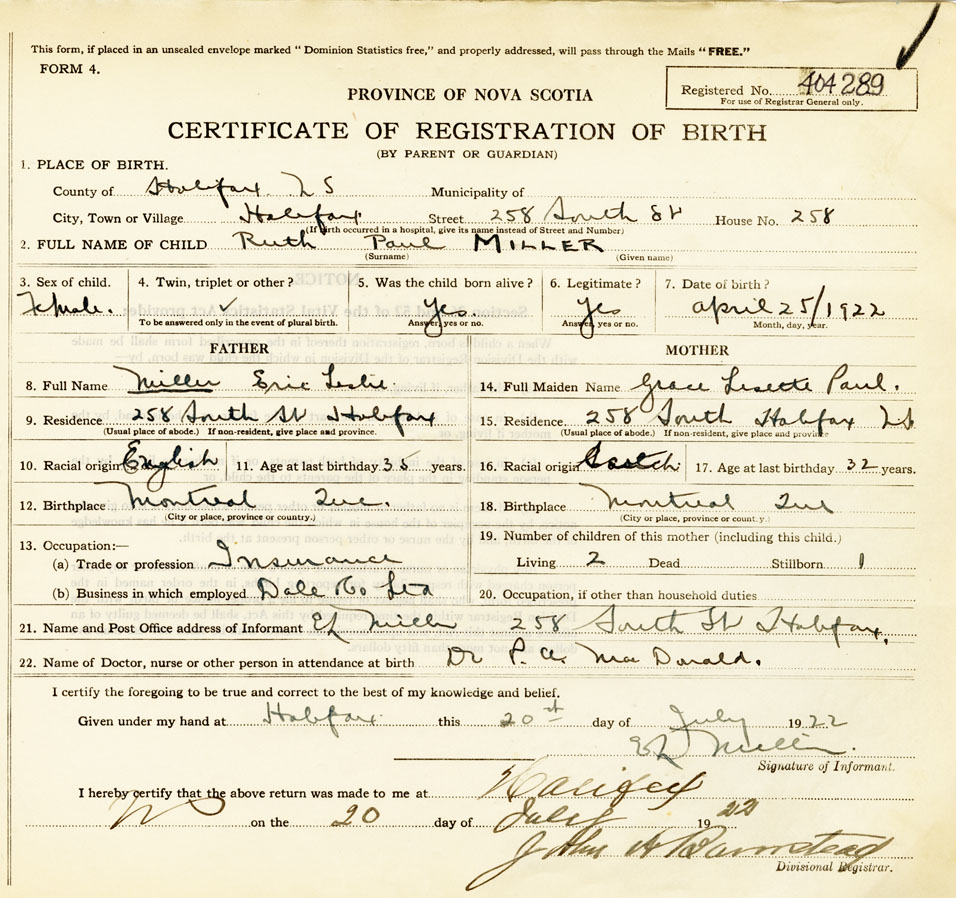 This form, if placed in an unsealed envelope marked "Dominion Statistics free," and properly addressed, will pass through the Mails "FREE."
FORM 4.
Registered No. 404289
For use of Registrar General only.
PROVINCE OF NOVA SCOTIA
CERTIFICATE OF REGISTRATION OF BIRTH
(BY PARENT OR GUARDIAN)
1. PLACE OF BIRTH.
County of Halifax N S Municipality of
City, Town or Village Halifax Street 258 South St House No. 258
(If birth occurred in a hospital, give its name instead of Street and Number)
2. FULL NAME OF CHILD Ruth Paul MILLER
(Surname) (Given name)
3. Sex of child. 4. Twin, triplet or other? 5. Was the child born alive? 6. Legitimate? 7. Date of birth?
Female. ✓ Yes. Yes April 25/1922
To be answered only in the event of plural birth. Answer, yes or no. Answer, yes or no. Month, day, year.
FATHER MOTHER
8. Full Name Miller Eric Leslie. 14. Full Maiden Name Grace Lisette Paul.
9. Residence 258 South St Halifax 15. Residence 258 South Halifax NS
(Usual place of abode.) If non-resident, give place and province. (Usual place of abode.) If non-resident, give place and province
10. Racial origin English 11. Age at last birthday 35 years. 16. Racial origin Scotch 17. Age at last birthday 32 years.
12. Birthplace Montreal Que. 18. Birthplace Montreal Que
(City or place, province or country.) (City or place, province or country.)
13. Occupation:— 19. Number of children of this mother (including this child.)
(a) Trade or profession Insurance Living 2 Dead Stillborn 1
(b) Business in which employed Dale Co Ltd 20. Occupation, if other than household duties
21. Name and Post Office address of Informant EL Miller 258 South St Halifax.
22. Name of Doctor, nurse or other person in attendance at birth Dr P. A. MacDonald.
I certify the foregoing to be true and correct to the best of my knowledge and belief.
Given under my hand at Halifax this 20st day of July 1922
EL Miller.
Signature of Informant.
I hereby certify that the above return was made to me at Halifax
NS on the 20 day of July 1922
John A Barnstead
Divisional Registrar.